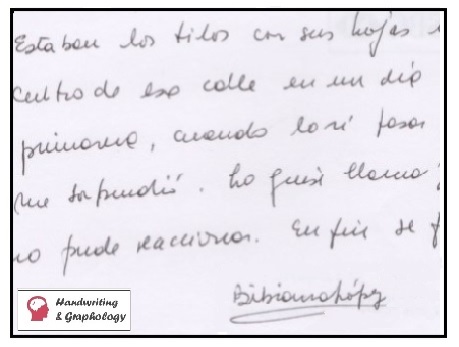 Estaban los tilos con sus hojas
centro de esa calle en un día
primavera, cuando lo vi pasar
me sorprendió. Lo quise llamar
no pude reaccionar. En fin se
Bibiana López
Handwriting
& Graphology